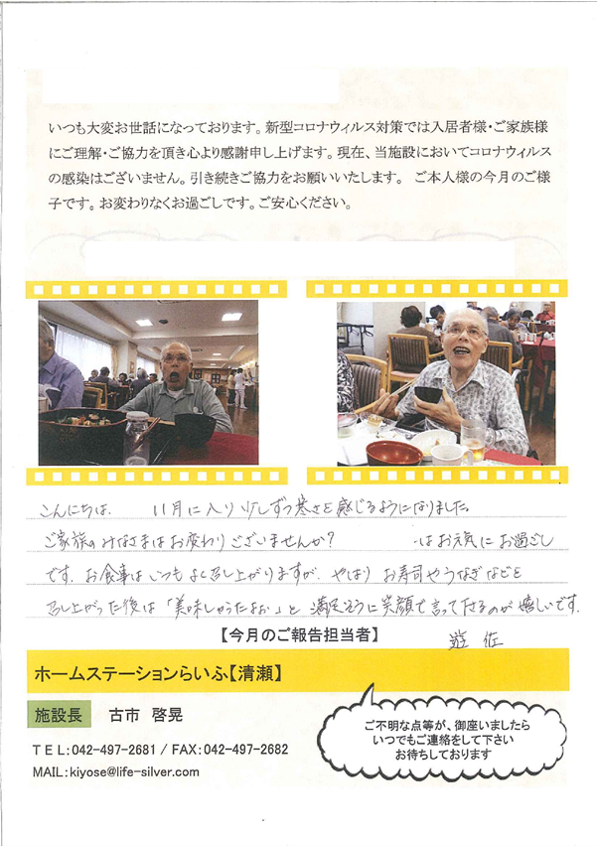 いつも大変お世話になっております。新型コロナウィルス対策では入居者様・ご家族様
にご理解・ご協力を頂き心より感謝申し上げます。現在、当施設においてコロナウィルス
の感染はございません。引き続きご協力をお願いいたします。 ご本人様の今月のご様
子です。お変わりなくお過ごしです。ご安心ください。
こんにちは、 11月に入り少しずつ寒さを感じるようになりました。
ご家族のみなさまはお変わりございませんか? はお元気にお過ごし
です。お食事はいつもよく召し上がりますが、やはりお寿司やうなぎなどを
召し上がった後は「美味しかったよぉ」と満足そうに笑顔で言って下さるのが嬉しいです。
【今月のご報告担当者】
遊佐
ホームステーションらいふ【清瀬】
施設長 古市 啓晃
TEL:042-497-2681 / FAX:042-497-2682
MAIL:kiyose@life-silver.com
ご不明な点等が、御座いましたら
いつでもご連絡をして下さい
お待ちしております